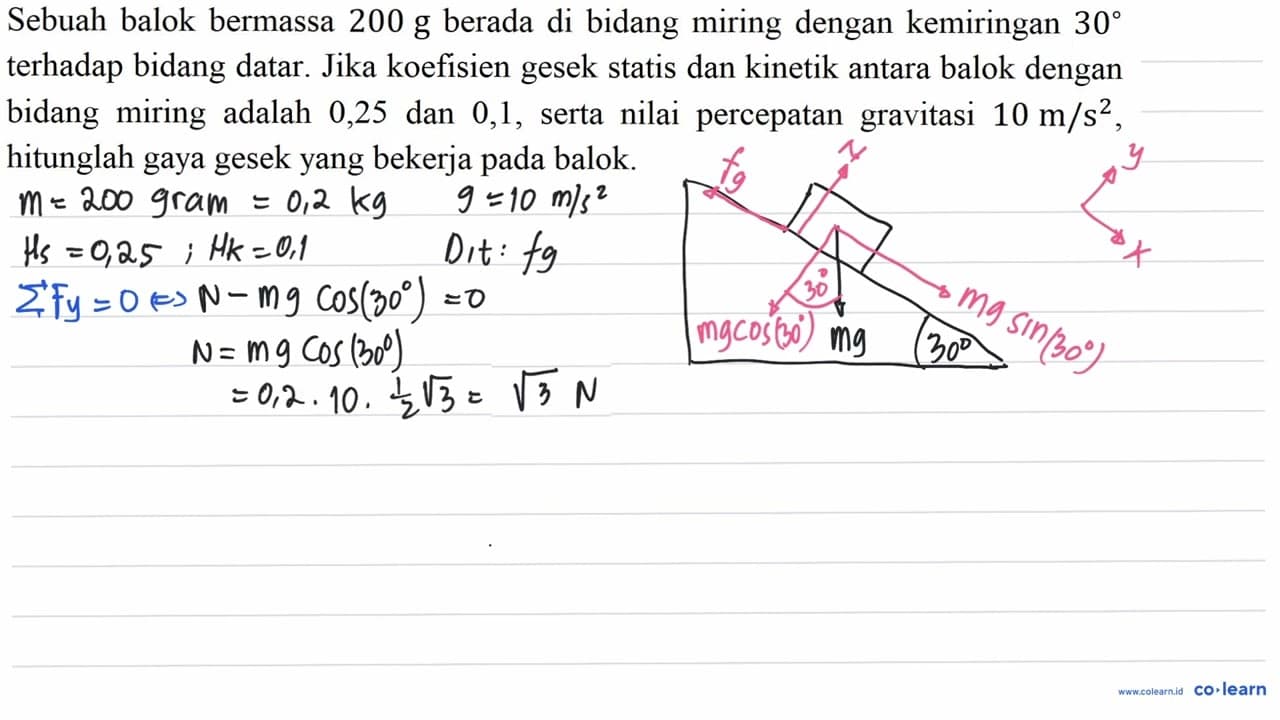 Sebuah balok bermassa 200 g berada di bidang miring dengan kemiringan 30°
terhadap bidang datar. Jika koefisien gesek statis dan kinetik antara balok dengan
bidang miring adalah 0,25 dan 0,1, serta nilai percepatan gravitasi 10 m/s²,
hitunglah gaya gesek yang bekerja pada balok.
m = 200 gram = 0,2 kg g = 10 m/s²
μs = 0,25 ; μk = 0,1 Dit : fg
ΣFy = 0 ⇔ N - mg cos(30°) = 0
N = mg cos(30°)
= 0,2 . 10 . 1/2 √3 = √3 N
fg
N
y
x
30°
mg cos(30°)
mg
30°
mg sin(30°)
www.colearn.id co·learn